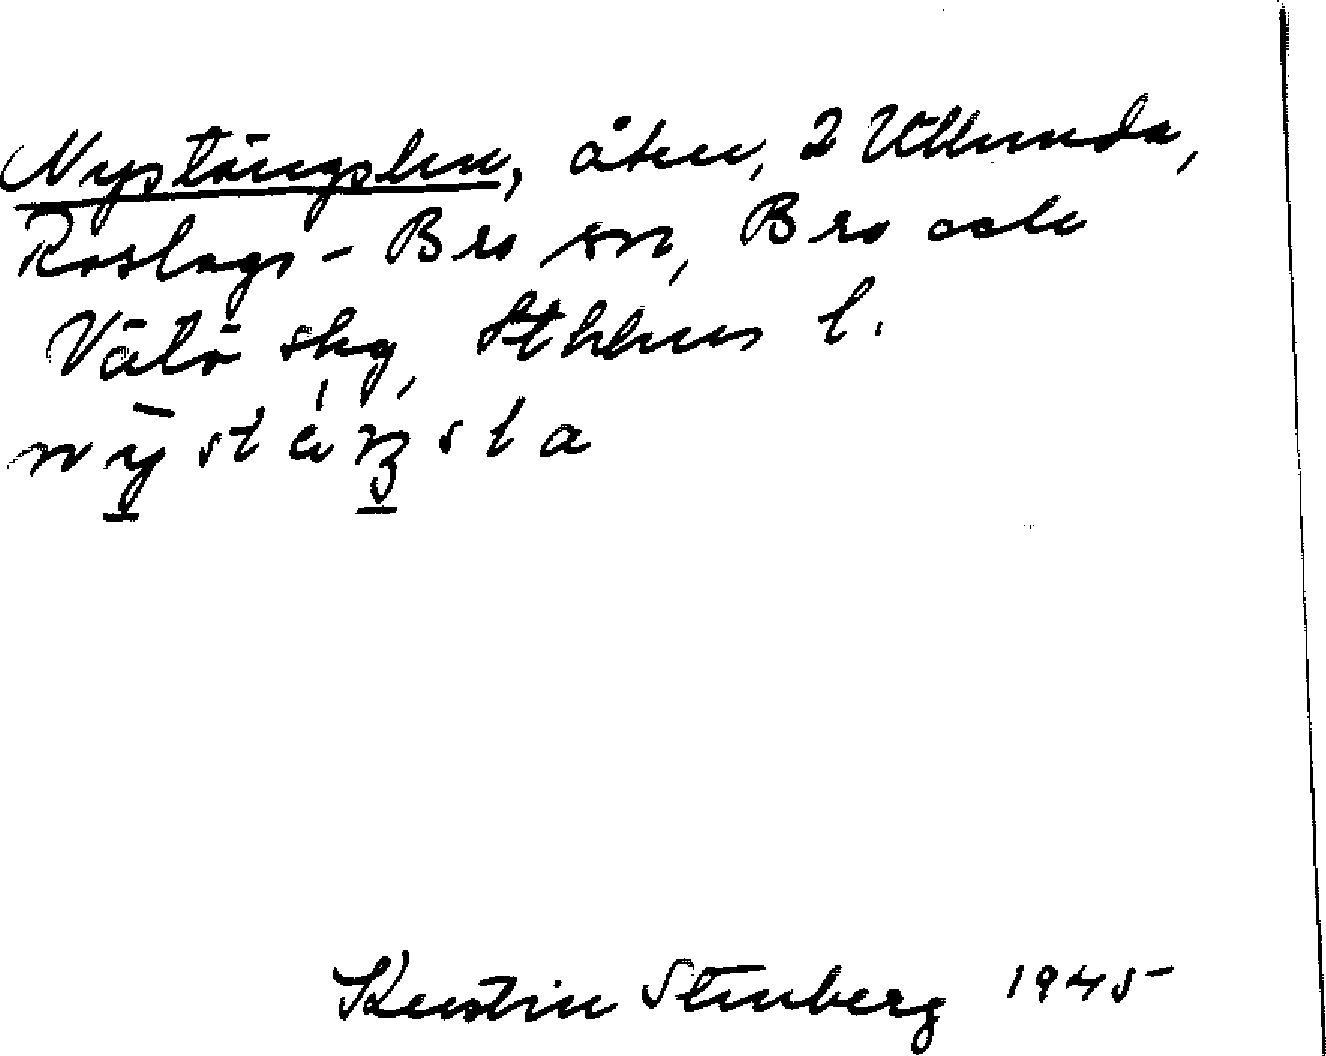 Nystängslan, åker, 2 Ullunda,
Roslags-Bro sn, Bro och
Vätö skg, Sthlms l.
nystäŋsla
Kerstin Stenberg 1945